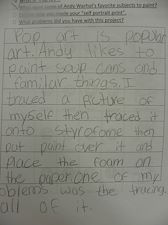 What are some of Andy Warhol's favorite subjects to paint?
Explain how you made your "self portrait print".
What problems did you have with this project?
Pop art is popular
art. Andy likes to
paint soup cans and
familiar things. I
traced a picture of
myself then traced it
onto styrofome then
put paint over it and
place the foam on
the paper. One of my
oblems was the tracing
all of it.